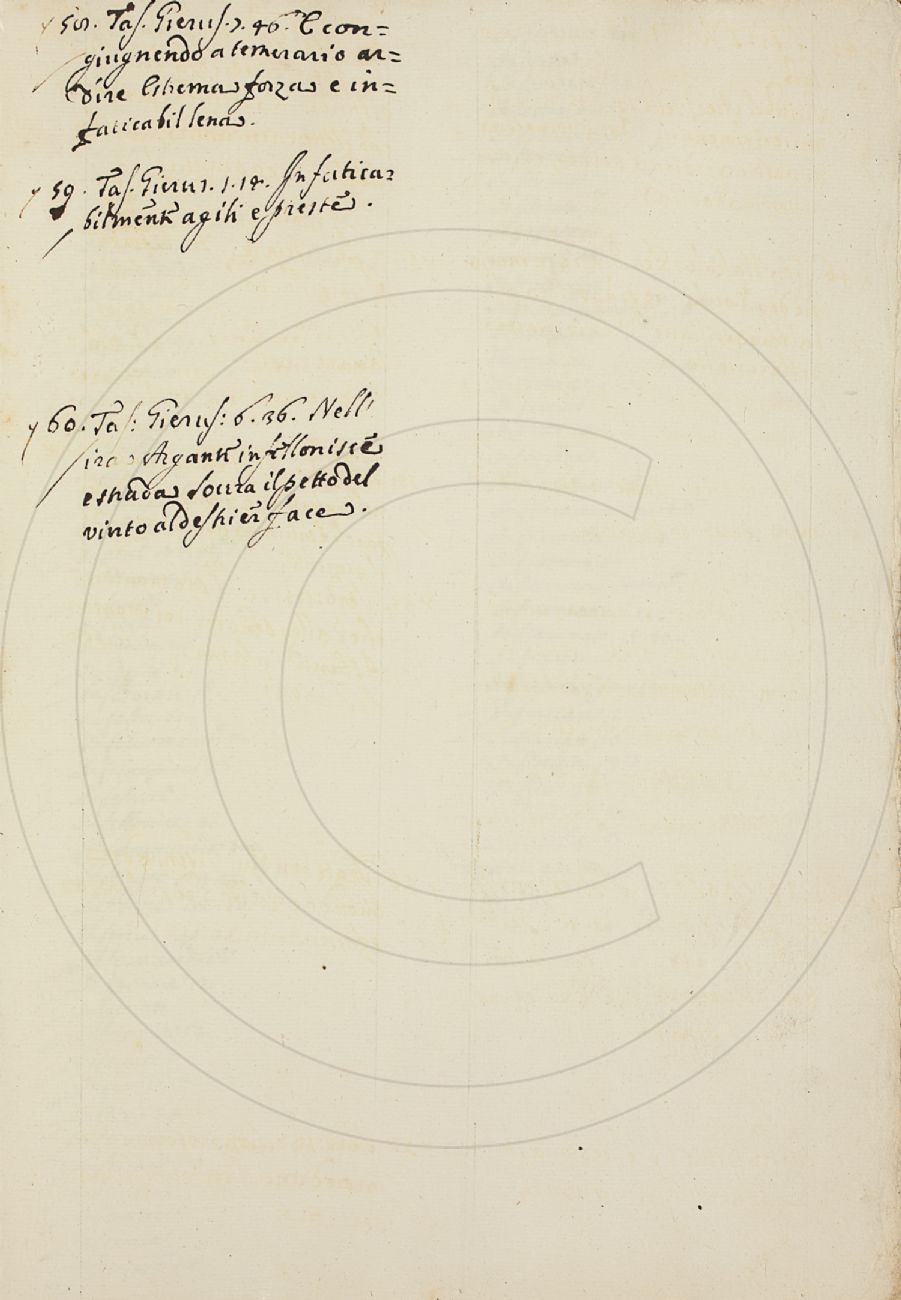 58. Tas. Gierus. 2. 46. E con=
giugnendo a temerario ar=
dire Estrema forza e in=
faticabil lena.
59. Tas. Gierus. 1. 14. Infatica=
bilmente agili e preste.
60. Tas: Gierus: 6. 36. Nell'
ira Argante infellonisce
e strada soura il petto del
vinto al destrier face.